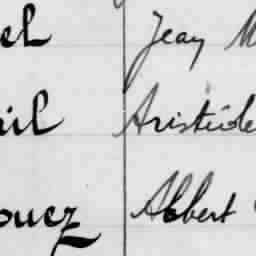 el Jean M
il Aristide
ouez Albert